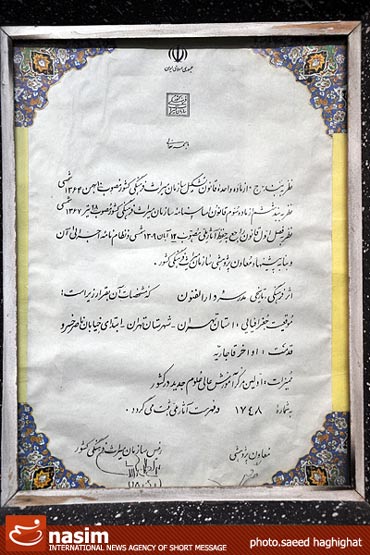 جمهوری اسلامی ایران
نظر به بند ج از ماده واحده قانون تشکیل سازمان میراث فرهنگی کشور مصوب بهمن ۱۳۶۴ شمسی
نظر به بند ششم از ماده سوم قانون اساسنامه سازمان میراث فرهنگی کشور مصوب ۲۸ تیر ۱۳۶۷ شمسی
نظر به فصل اول قانون راجع به حفظ آثار ملی مصوب ۱۲ آبان ۱۳۰۹ شمسی و نظامنامه اجرائی آن
و بنا به پیشنهاد معاون پژوهشی سازمان میراث فرهنگی کشور .
اثر فرهنگی، تاریخی مدرسه دارالفنون که مشخصات آن بقرار زیر است :
موقعیت جغرافیایی : استان تهران - شهرستان تهران - ابتدای خیابان ناصرخسرو
قدمت : اواخر قاجاریه
ممیزات : اولین مرکز آموزش عالی علوم جدید در کشور
به شماره ۱۷۴۸ در فهرست آثار ملی ثبت می گردد .
معاون پژوهشی رئیس سازمان میراث فرهنگی کشور
nasim
INTERNATIONAL NEWS AGENCY OF SHORT MESSAGE
photo.saeed haghighat